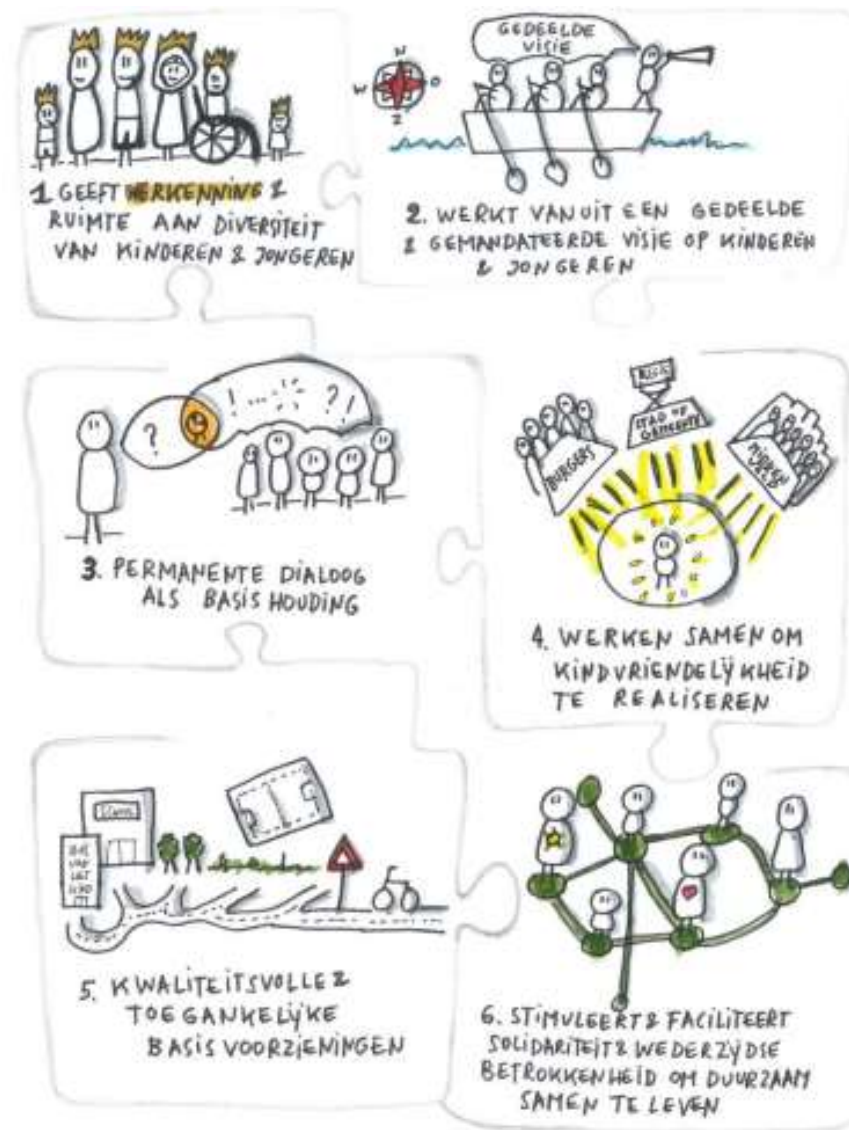 1 GEEFT HERKENNING &
RUIMTE AAN DIVERSITEIT
VAN KINDEREN & JONGEREN
N
W O
Z
GEDEELDE
VISIE
2. WERKT VANUIT EEN GEDEELDE
& GEMANDATEERDE VISIE OP KINDEREN
& JONGEREN
? !...? !
3. PERMANENTE DIALOOG
ALS BASISHOUDING
STAD OF
GEMEENTE
BURGERS
MIDDEN
VELD
4. WERKEN SAMEN OM
KINDVRIENDELIJKHEID
TE REALISEREN
5. KWALITEITSVOLLE &
TOEGANKELIJKE
BASISVOORZIENINGEN
6. STIMULEERT & FACILITEERT
SOLIDARITEIT & WEDERZIJDSE
BETROKKENHEID OM DUURZAAM
SAMEN TE LEVEN